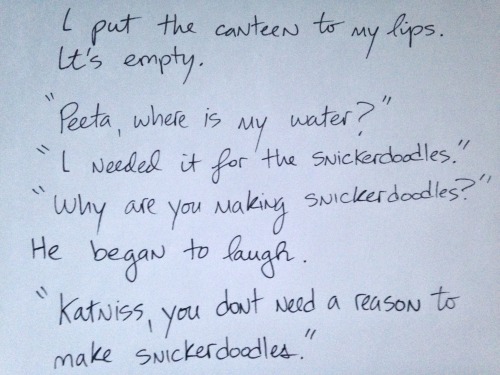 I put the canteen to my lips.
It's empty.
"Peeta, where is my water?"
"I needed it for the snickerdoodles."
"Why are you making snickerdoodles?"
He began to laugh.
"Katniss, you dont need a reason to
make snickerdoodles."